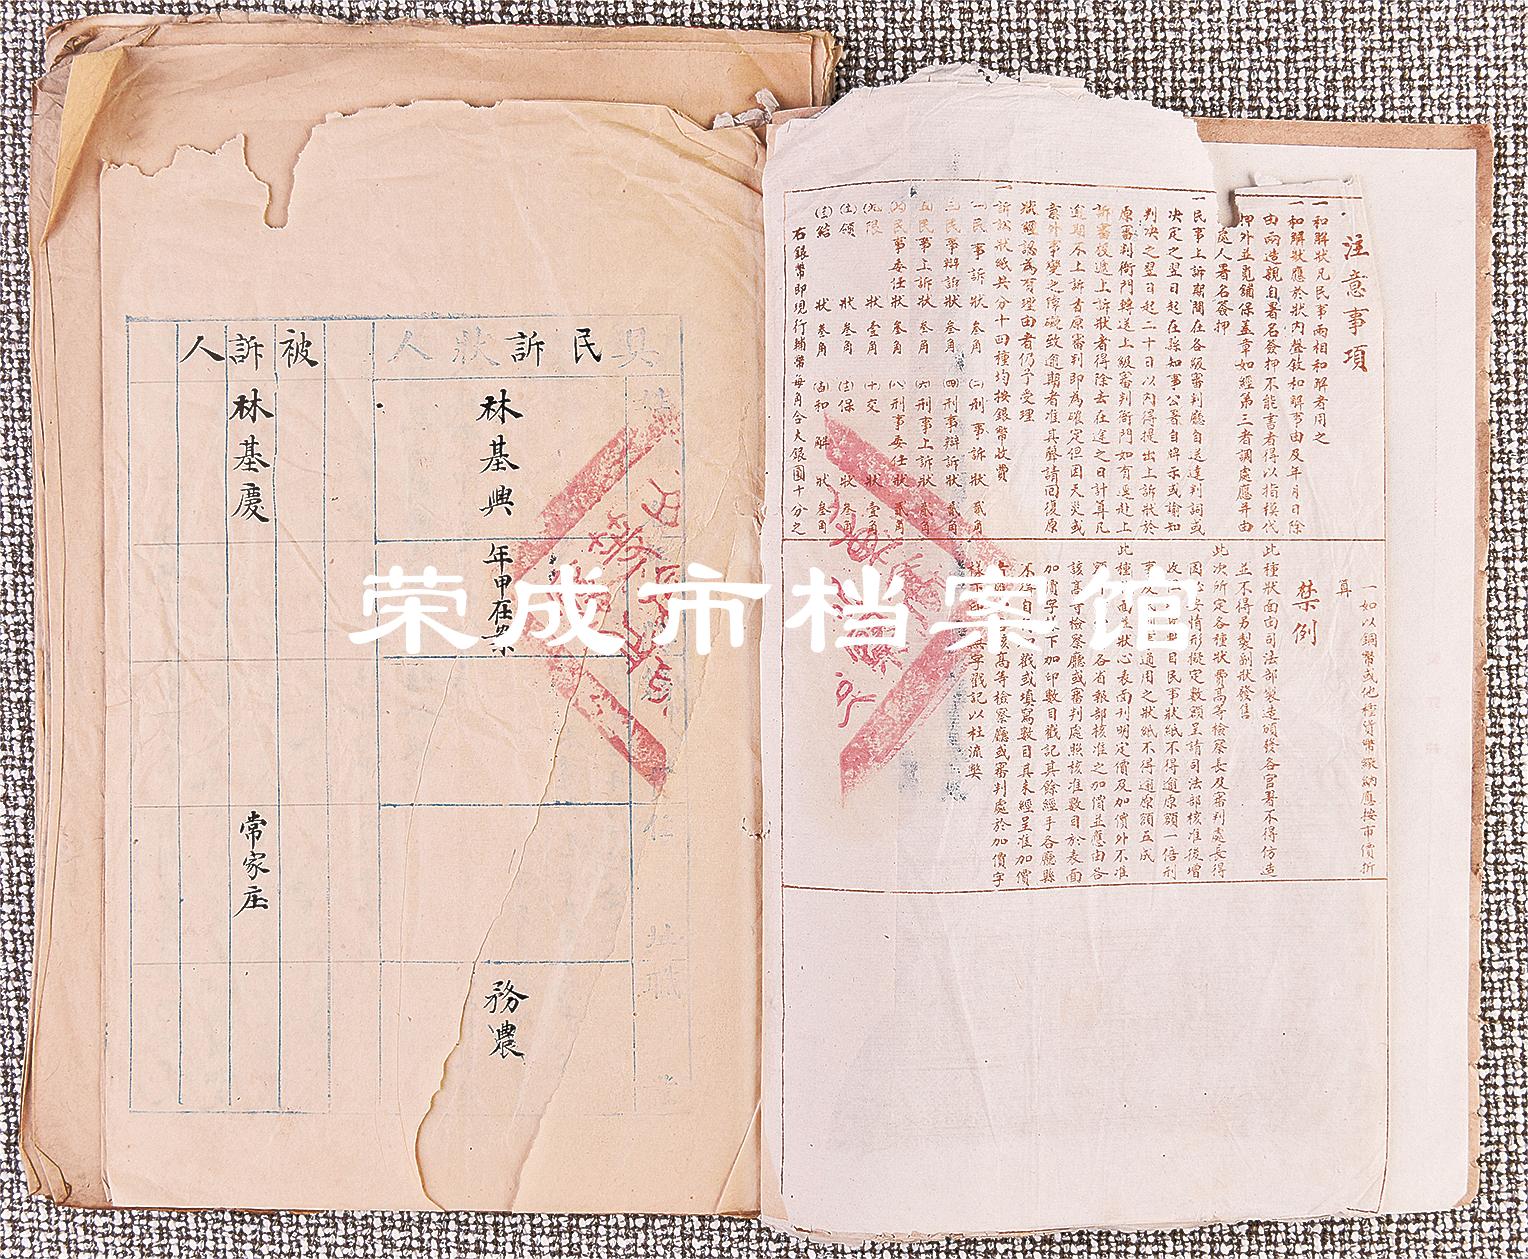 注意事項
一和解狀凡民事兩相和解者用之
一和解狀應於狀內聲敘和解事由及年月日除
由兩造親自署名簽押不能書者得以指模代
押外並覓舖保蓋章如經第三者調處應并由
處人署名簽押
一民事上訴期間在各級審判廳自送達判詞或
決定之翌日起在縣知事公署自牌示或諭知
判決之翌日起二十日以內得提出上訴狀於
原審判衙門轉送上級審判衙門如有逕赴上
訴審後遞上訴狀者得除去在途之日計算凡
逾期不上訴者原審判即為確定但因天災或
意外事變之障礙致逾期者准其聲請回復原
狀經認為有理由者仍予受理
一訴訟狀紙共分十四種均按銀幣收費
㈠民事訴狀 叁角 ㈡刑事訴狀 貳角
㈢民事辯訴狀 叁角 ㈣刑事辯訴狀 貳角
㈤民事上訴狀 叁角 ㈥刑事上訴狀 貳角
㈦民事委任狀 叁角 ㈧刑事委任狀 貳角
㈨限狀 壹角 ㈩交狀 壹角
(十一)領狀 叁角 (十二)保狀 叁角
(十三)結狀 叁角 (十四)和解狀 叁角
右銀幣即現行輔幣每角合大銀圓十分之
一如以銅幣或他種貨幣繳納應按市價折
算
禁例
此種狀面由司法部製造頒發各官署不得仿造
並不得另製副狀發售
此次所定各種狀費高等檢察長及審判處長得
因 情形擬定數額呈請司法部核准後增
收 目民事狀紙不得逾原額一倍刑
事及 通用之狀紙不得逾原額五成
此種 狀心表面刊明定價及加價外不准
額 各省報部核准之加價並應由各
該高等檢察廳或審判處照核准數目於表面
加價字 下加印數目戳記其餘經手各廳縣
不得自 戳或填寫數目其未經呈准加價
核高等檢察廳或審判處於加價字
樣 無字戳記以杜流弊
具民訴狀人
林基興
年甲在案
務農
被訴人
林基慶
常家庄
荣成市档案馆